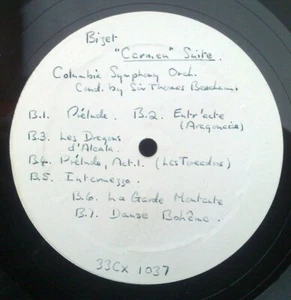 Bizet
"Carmen" Suite.
Columbia Symphony Orch.
Cond. by Sir Thomas Beecham
B.1. Prélude. B.2. Entr'acte
(Aragonaise)
B.3. Les Dragons
d'Alcala.
B.4. Prélude, Act.1. (Les Toreadors)
B.5. Intermezzo.
B.6. La Garde Montante
B.7. Danse Bohême.
33CX 1037